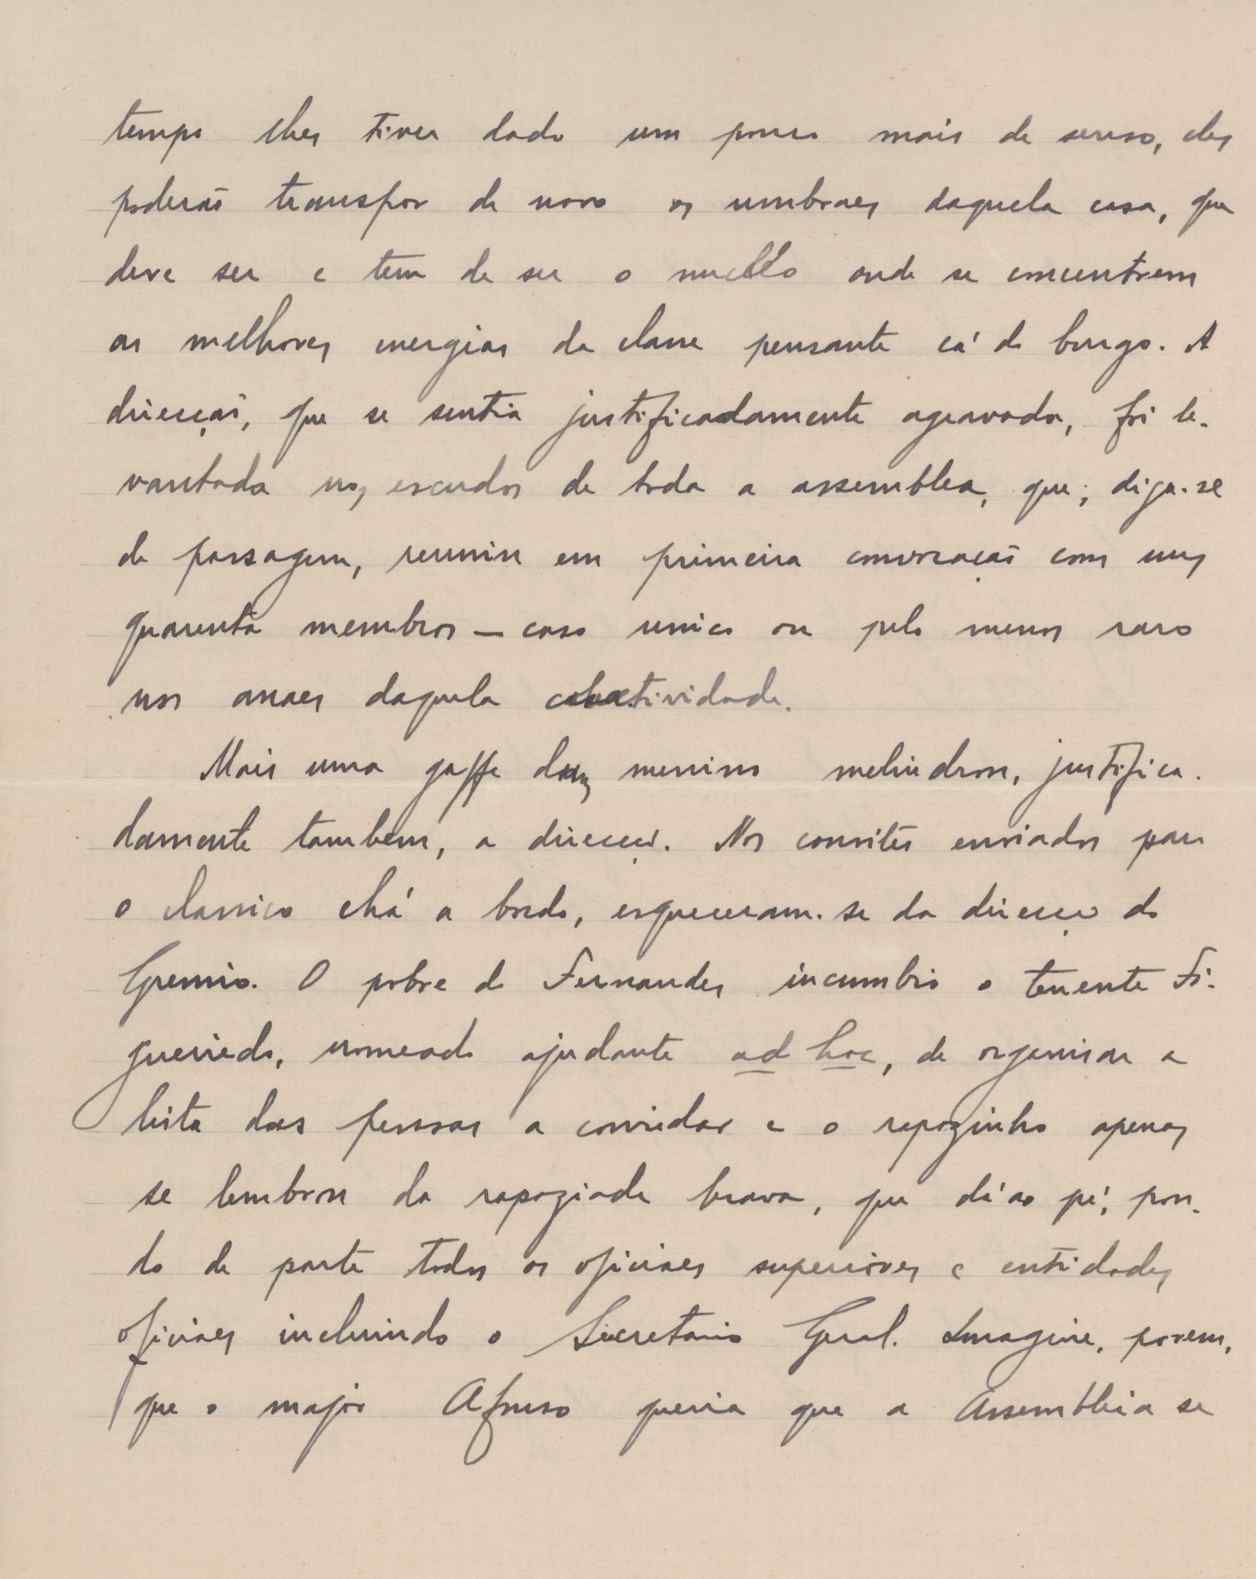 tempo lhes tiver dado um pouco mais de senso, eles
poderaõ transpor de novo os umbraes daquela casa, que
deve ser e tem de ser o nucleo onde se concentrem
as melhores energias da classe pensante cá do burgo. A
direcçaõ, que se sentia justificadamente agravada, foi le-
vantada nos escudos de toda a assemblea, que, diga-se
de passagem, reuniu em primeira convocaçaõ com uns
quarenta membros — caso unico ou pelo menos raro
nos anaes daquela colectividade.
Mais uma gaffe dos meninos melindrou, justifica-
damente tambem, a direcçaõ. Nos convites enviados para
o classico chá a bordo, esqueceram-se da direcçaõ do
Gremio. O pobre do Fernandes incumbio o tenente Fi-
gueiredo, nomeado ajudante ad hoc, de organisar a
lista das pessoas a convidar e o rapazinho apenas
se lembrou da rapaziada brava, que dá ao pé, pon-
do de parte todos os oficiaes superiores e entidades
oficiaes incluindo o Secretario Geral. Imagine, porem,
que o major Afonso queria que a Assembleia se